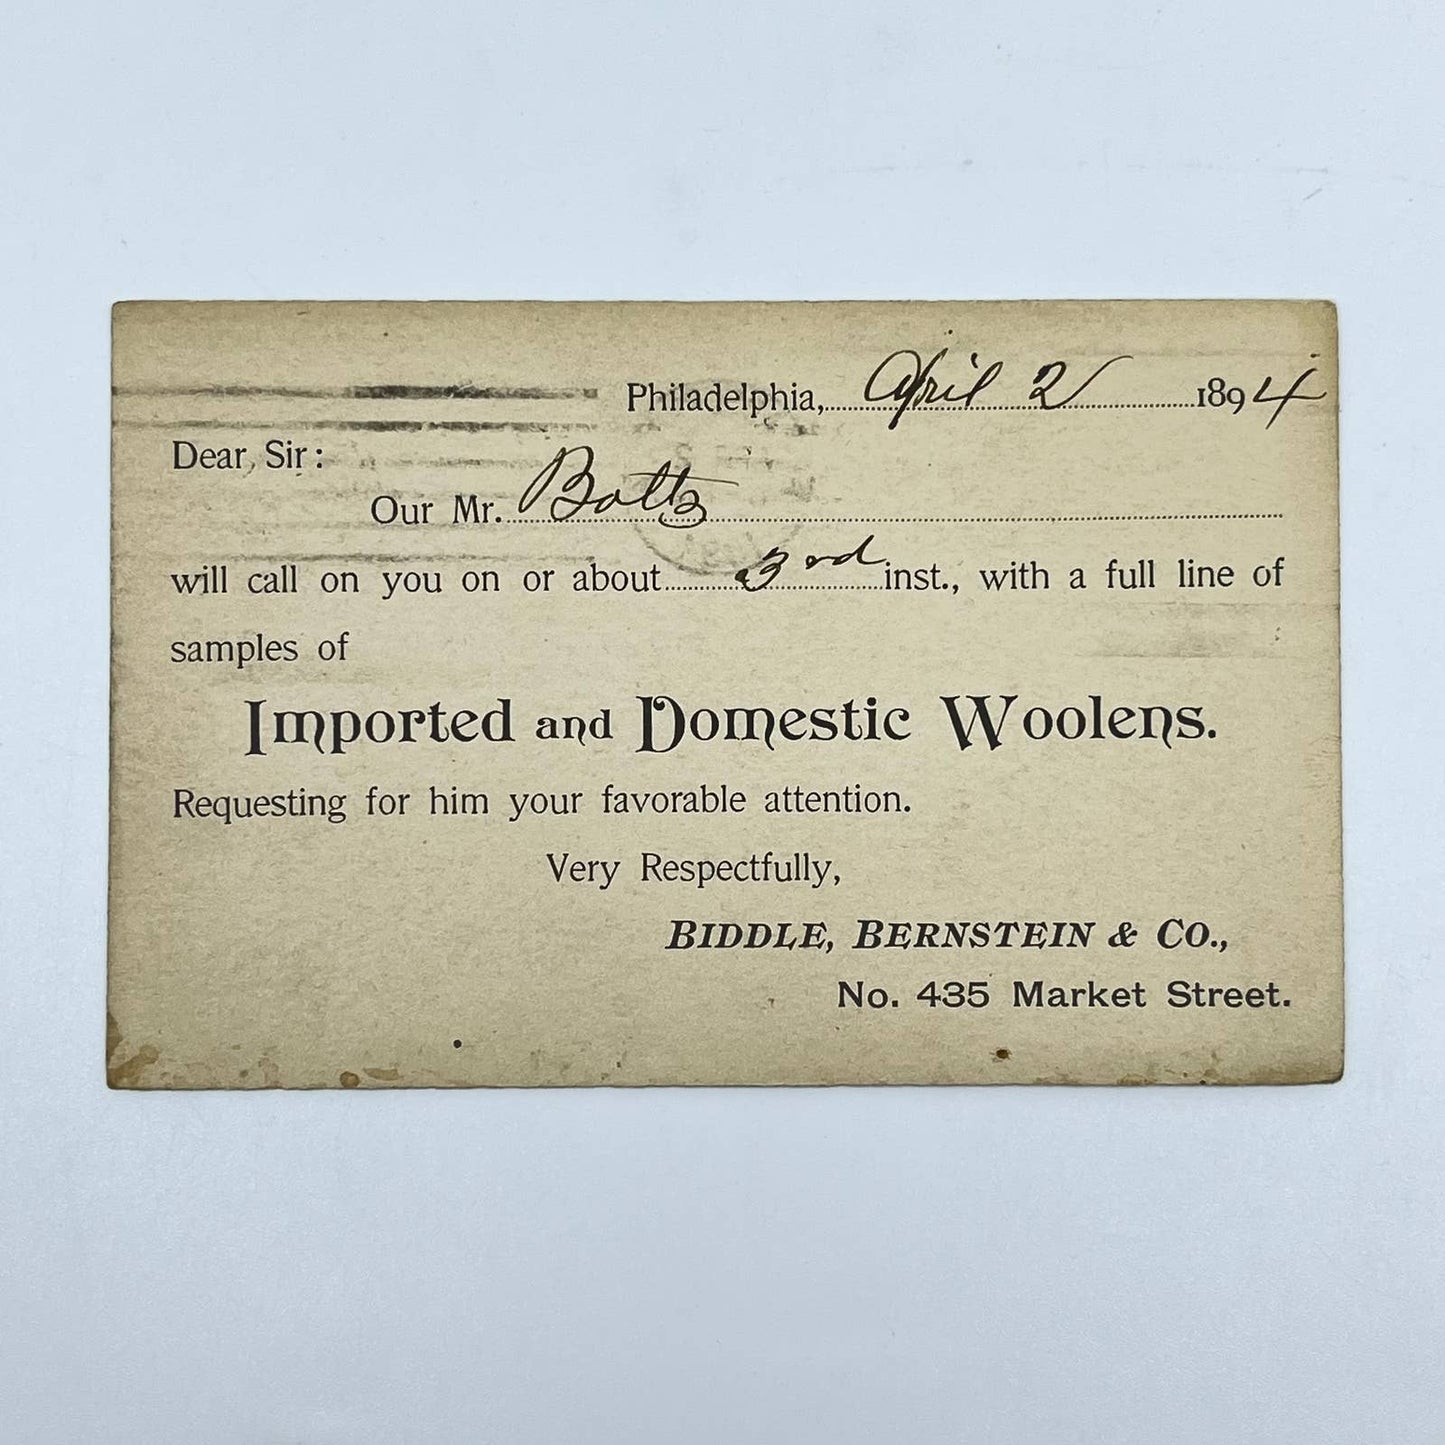 Philadelphia, April 2 1894
Dear Sir:
Our Mr. Botts
will call on you on or about 3rd inst., with a full line of
samples of
Imported and Domestic Woolens.
Requesting for him your favorable attention.
Very Respectfully,
BIDDLE, BERNSTEIN & CO.,
No. 435 Market Street.